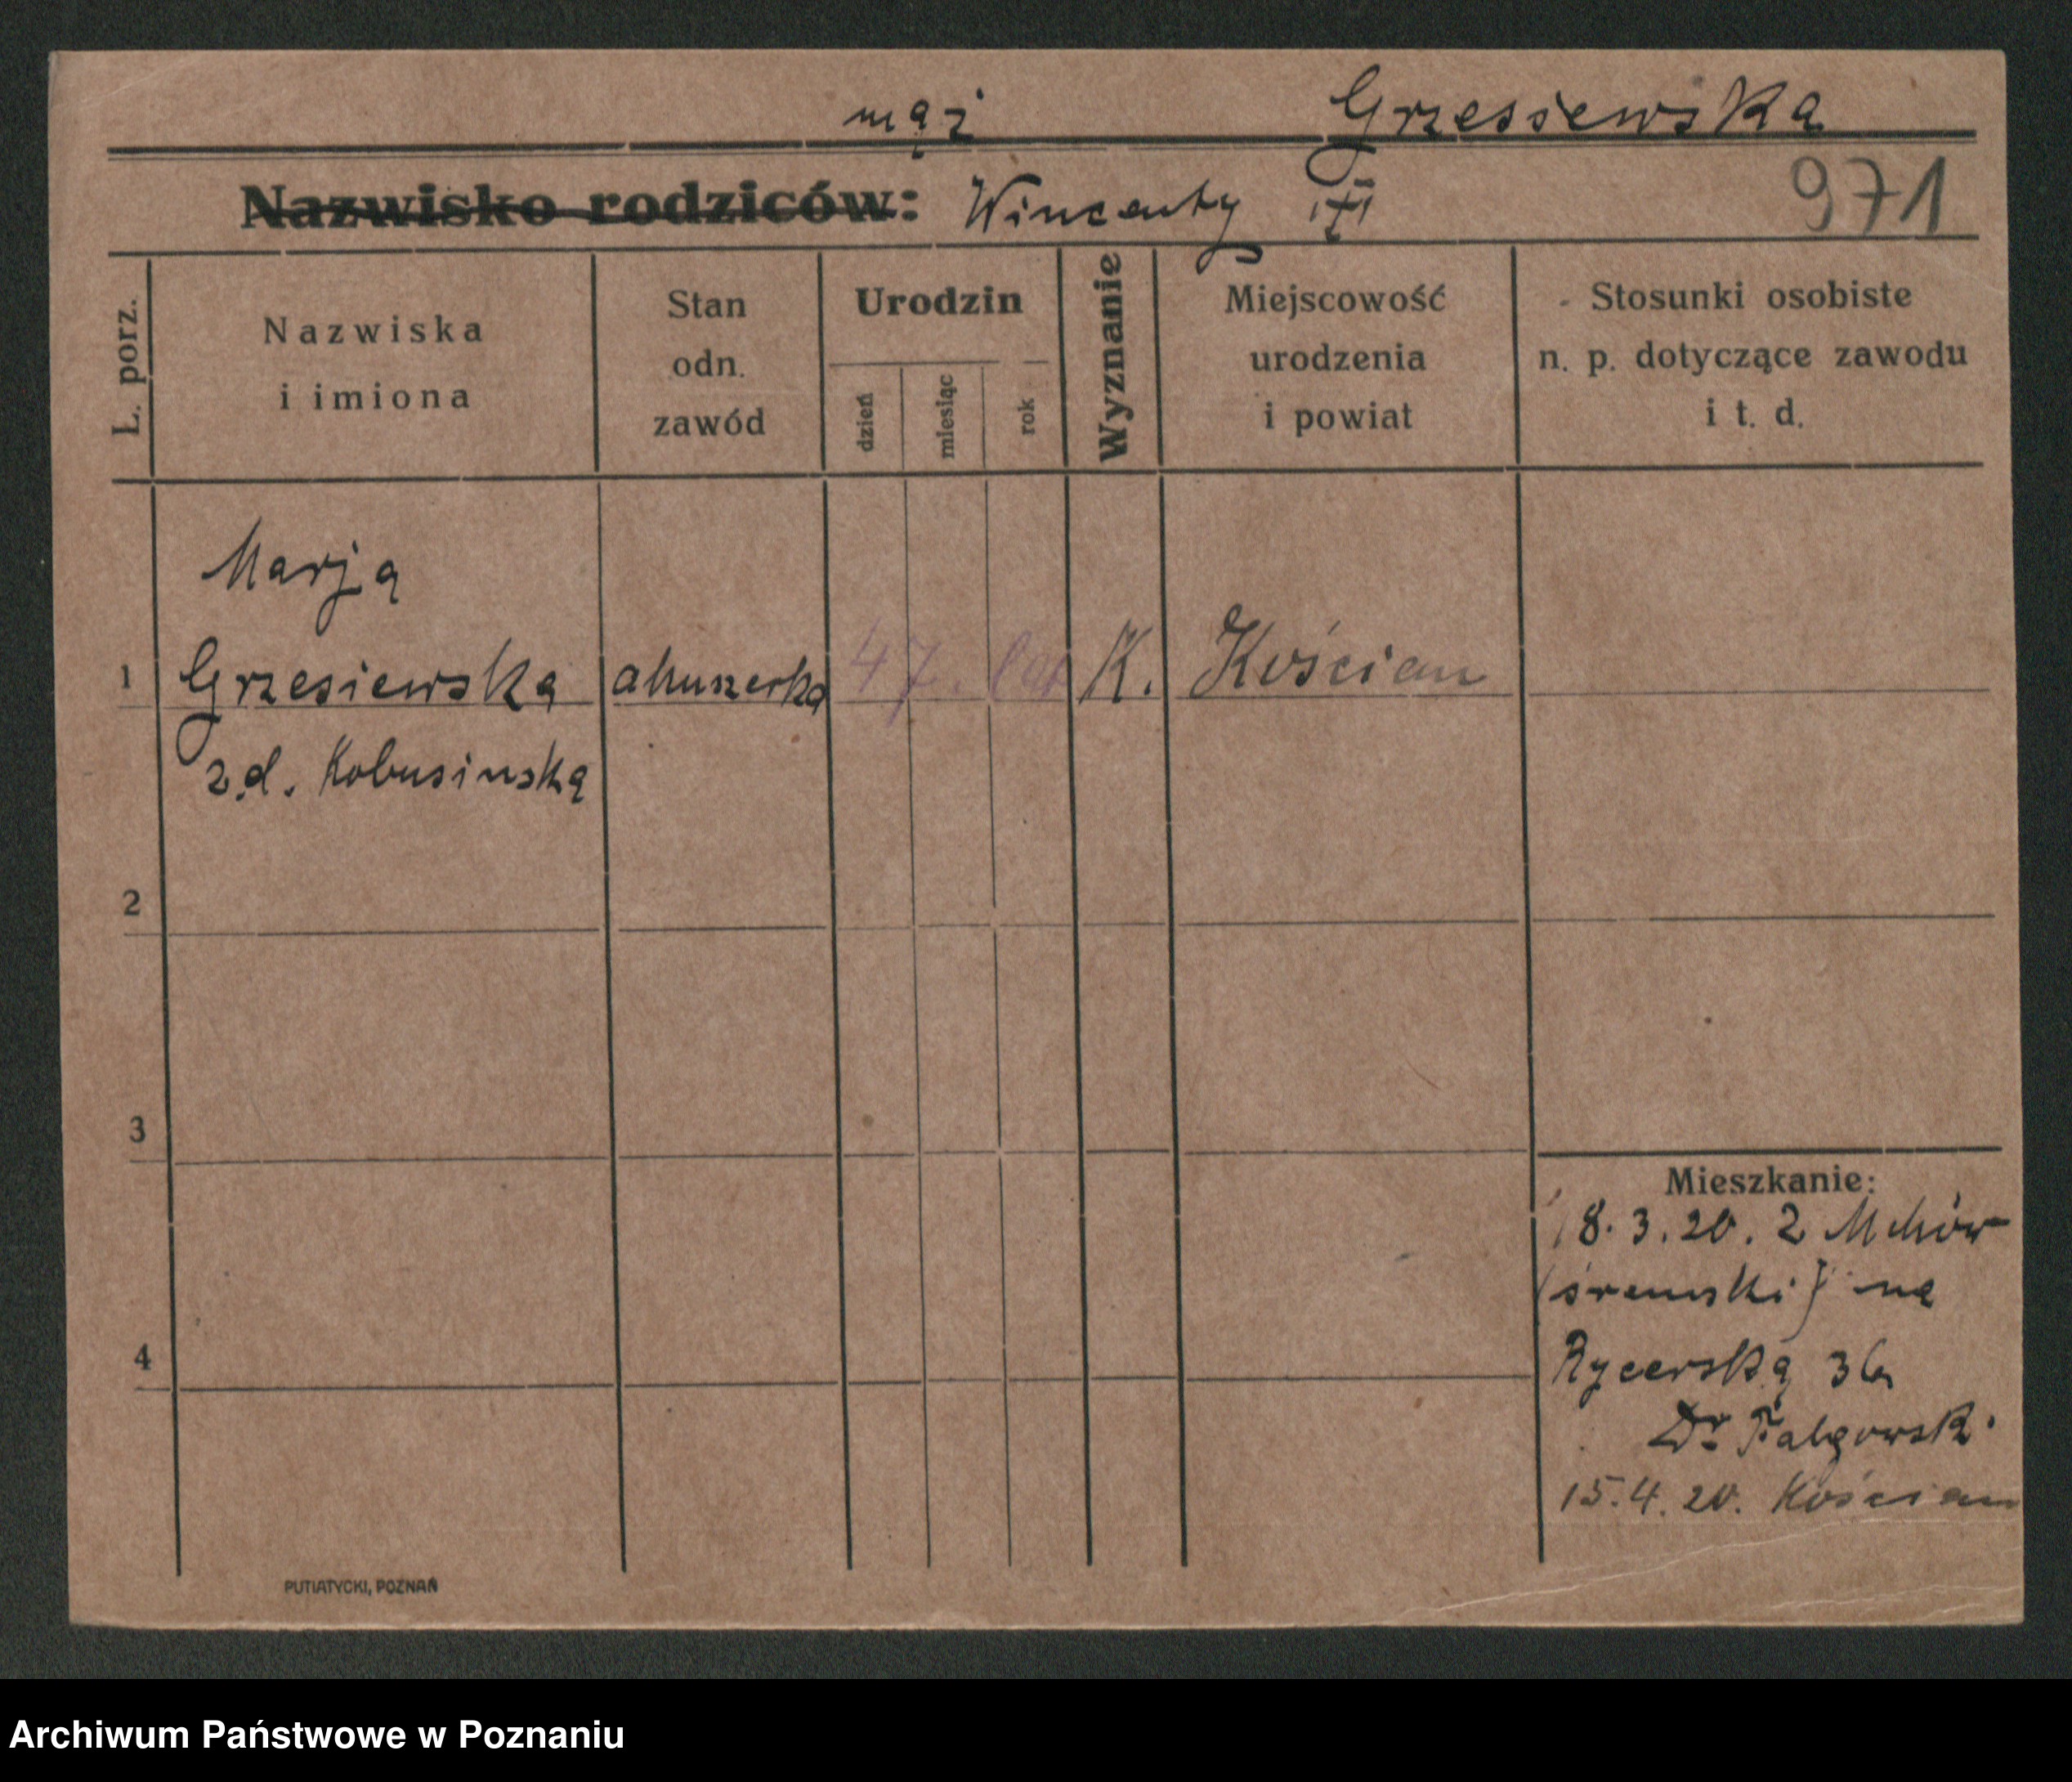 mąż Grzesiewska
Nazwisko rodziców: Wincenty 971
L. porz.
Nazwiska
i imiona
Stan
odn.
zawód
Urodzin
dzień
miesiąc
rok
Wyznanie
Miejscowość
urodzenia
i powiat
Stosunki osobiste
n. p. dotyczące zawodu
i t. d.
Marja
1 Grzesiewska akuszerka 47. lat K. Kościan
z.d. Kobusinska
2
3
4
Mieszkanie:
18.3.20. z Mchów
(śremski) na
Rycerską 36
Dr
15.4.20. Kościan
PUTIATYCKI, POZNAŃ
Archiwum Państwowe w Poznaniu